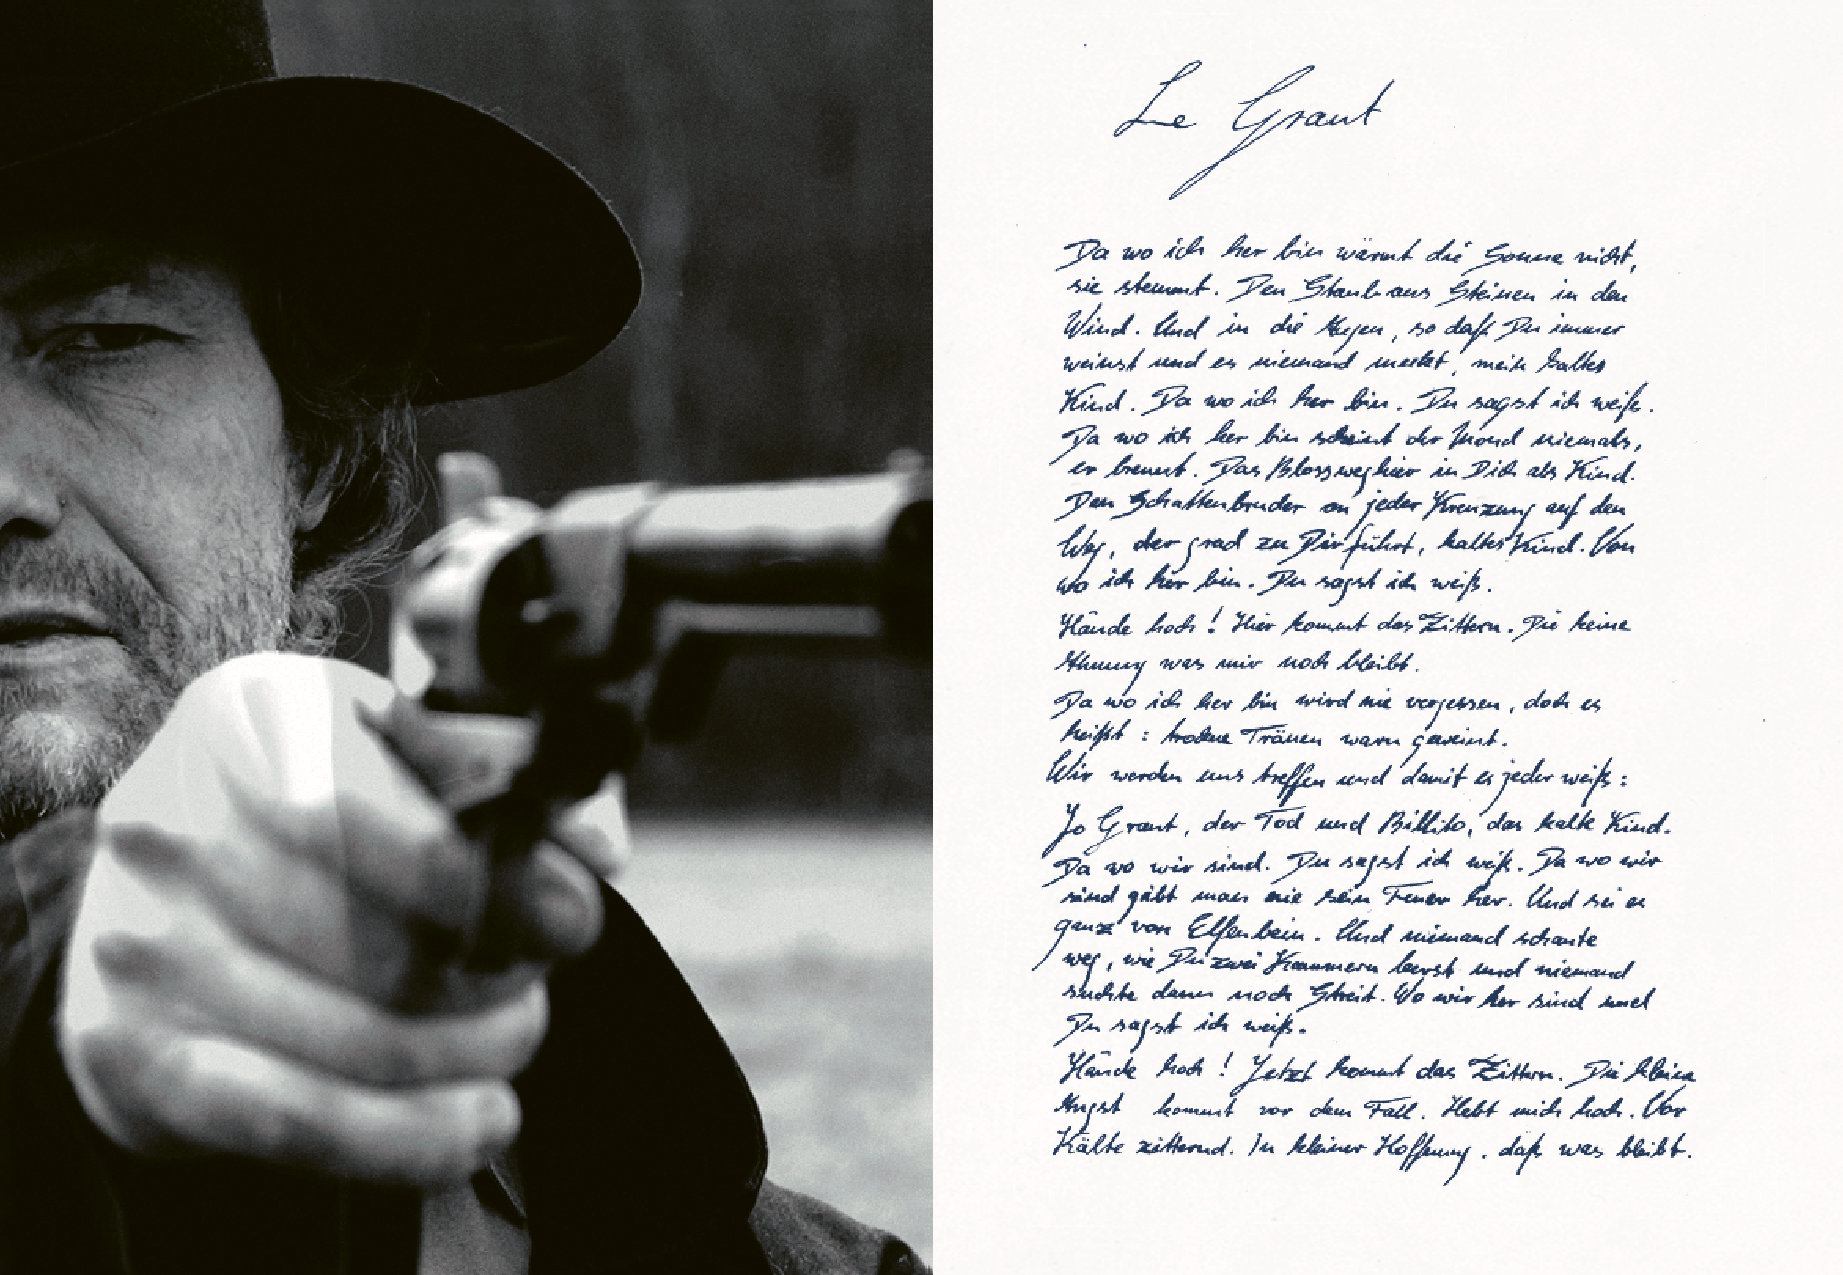 Le Grant
Da wo ich her bin wärmt die Sonne nicht,
sie stemmt. Den Staub aus Steinen in den
Wind. Und in die Augen, so daß Du immer
weinst und es niemand merkt, mein kaltes
Kind. Da wo ich her bin. Du sagst ich weiß.
Da wo ich her bin scheint der Mond niemals,
er brennt. Das Blossweghier in Dich als Kind.
Den Schattenbruder an jeder Kreuzung auf den
Weg, der grad zu Dir führt, kaltes Kind. Von
wo ich her bin. Du sagst ich weiß.
Hände hoch! Hier kommt das Zittern. Die keine
Ahnung was mir noch bleibt.
Da wo ich her bin wird nie vergessen, doch es
heißt: trockne Tränen warn geweint.
Wir werden uns treffen und damit es jeder weiß:
Jo Grant, der Tod und Billito, das kalte Kind.
Da wo wir sind. Du sagst ich weiß. Da wo wir
sind gibt man nie sein Feuer her. Und sei es
ganz von Elfenbein. Und niemand schaute
weg, wie Du zwei Kammern leerst und niemand
suchte dann noch Streit. Wo wir her sind und
Du sagst ich weiß.
Hände hoch! Jetzt kommt das Zittern. Die kleine
Angst kommt vor dem Fall. Hebt mich hoch. Vor
Kälte zitternd. In kleiner Hoffnung, daß was bleibt.